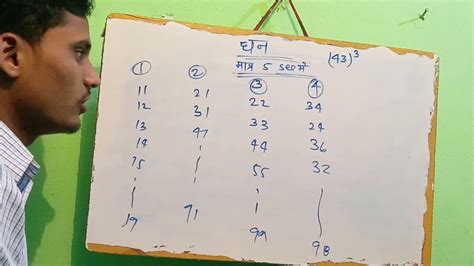 घन (43)³
मात्र 5 sec में
① ② ③ ④
11 21 22 34
12 31 33 24
13 41 44 36
14 55 32
15
19 91 99 98